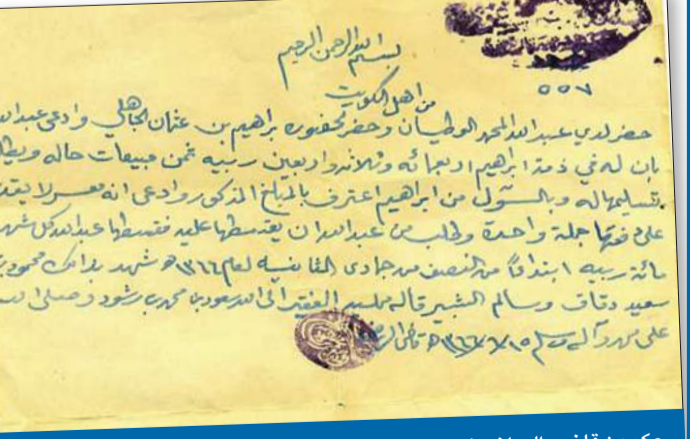 بسم الله الرحمن الرحيم
٥٥٧
من اهل الكويت
حضر لدي عبدالله المحمد الوطيان وحضر لحضوره براهيم بن عثمان وادعى عبدالله
بان له في ذمة ابراهيم اربعمائه وثلاثه واربعين ربيه ثمن مبيعات حاله ويطالب
بتسليمها له وبالسئول من ابراهيم اعترف بالمبلغ المذكور وادعى انه معسر لا يقدر
على دفعها جملة واحدة وطلب من عبدالله ان يقسطها عليه فقسطها عبدالله كل شهر
مائة ربيه ابتداً من النصف من جمادى الثانيه لعام ١٣٦٦ه شهد بذالك محمود بن
سعيد دقاق وسالم البشير قاله الفقير الى الله سعود بن محمد بن رشود وصلى الله
على محمد وآله وسلم ١٥/٦/١٣٦٦ه قاضي